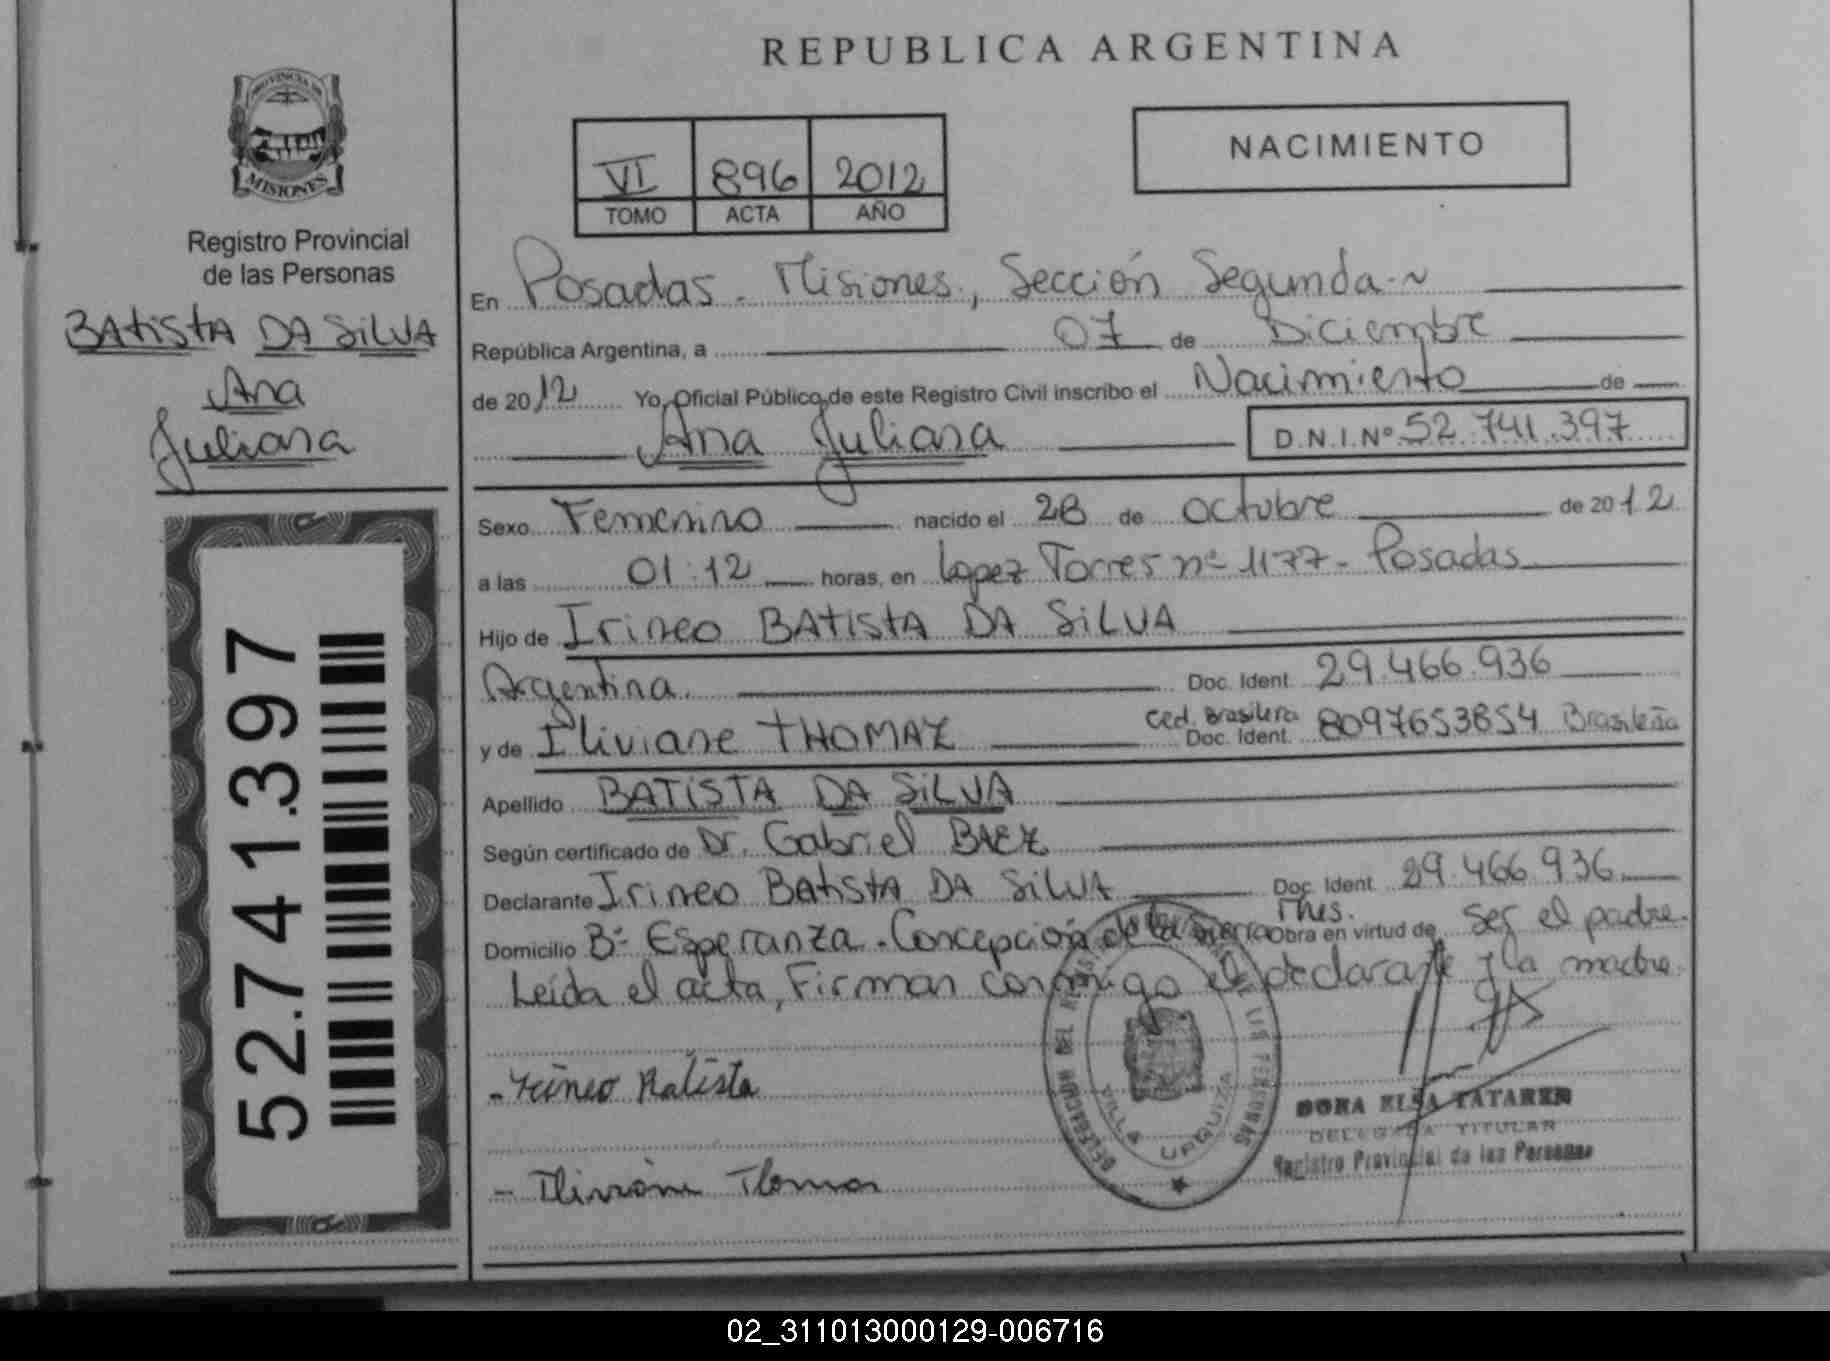 REPUBLICA ARGENTINA
PROVINCIA DE
MISIONES
Registro Provincial
de las Personas
BAtistA DA SiLVA
Ana
Juliana
52.741.397
VI 896 2012
TOMO ACTA AÑO
NACIMIENTO
En Posadas - Misiones, Sección Segunda.~
República Argentina, a 07 de Diciembre
de 2012 Yo, Oficial Público de este Registro Civil inscribo el Nacimiento de
Ana Juliana D.N.I.Nº 52.741.397
Sexo Femenino nacido el 28 de octubre de 2012
a las 01:12 horas, en Lopez Torres nº 1177 - Posadas
Hijo de Irineo BAtistA DA SiLVA
Argentina. Doc. Ident. 29.466.936
y de Iliviane THOMAZ Ced. Brasilera Doc. Ident. 8097653854 Brasileña
Apellido BATiSTA DA SiLVA
Según certificado de Dr. Gabriel BAEZ
Declarante Irineo BAtistA DA SiLVA Doc. Ident. 29.466.936
Domicilio Bº Esperanza - Concepción de la Sierra Mnes. Obra en virtud de ser el padre.
Leída el acta, Firman conmigo el declarante y la madre.
- Irineo Batista
DELEGACION DEL REGISTRO DE LAS PERSONAS
VILLA URQUIZA
DORA ELSA TATAREN
DELEGADA TITULAR
Registro Provincial de las Personas
02_311013000129-006716